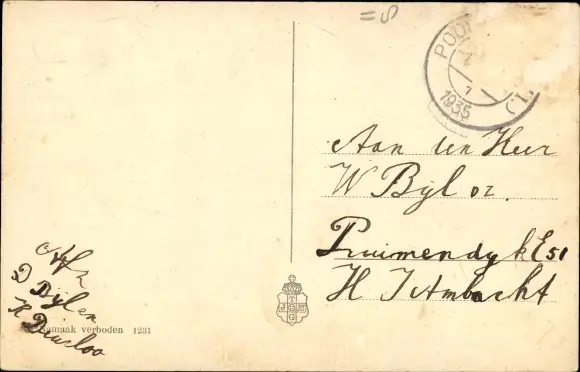 = S
POO
1
1935
Aan den Heer
W Bijl oz.
Pruimendijk E51
H I Ambacht
Afz
D Bijl en
K
Namaak verboden 1231
T
G